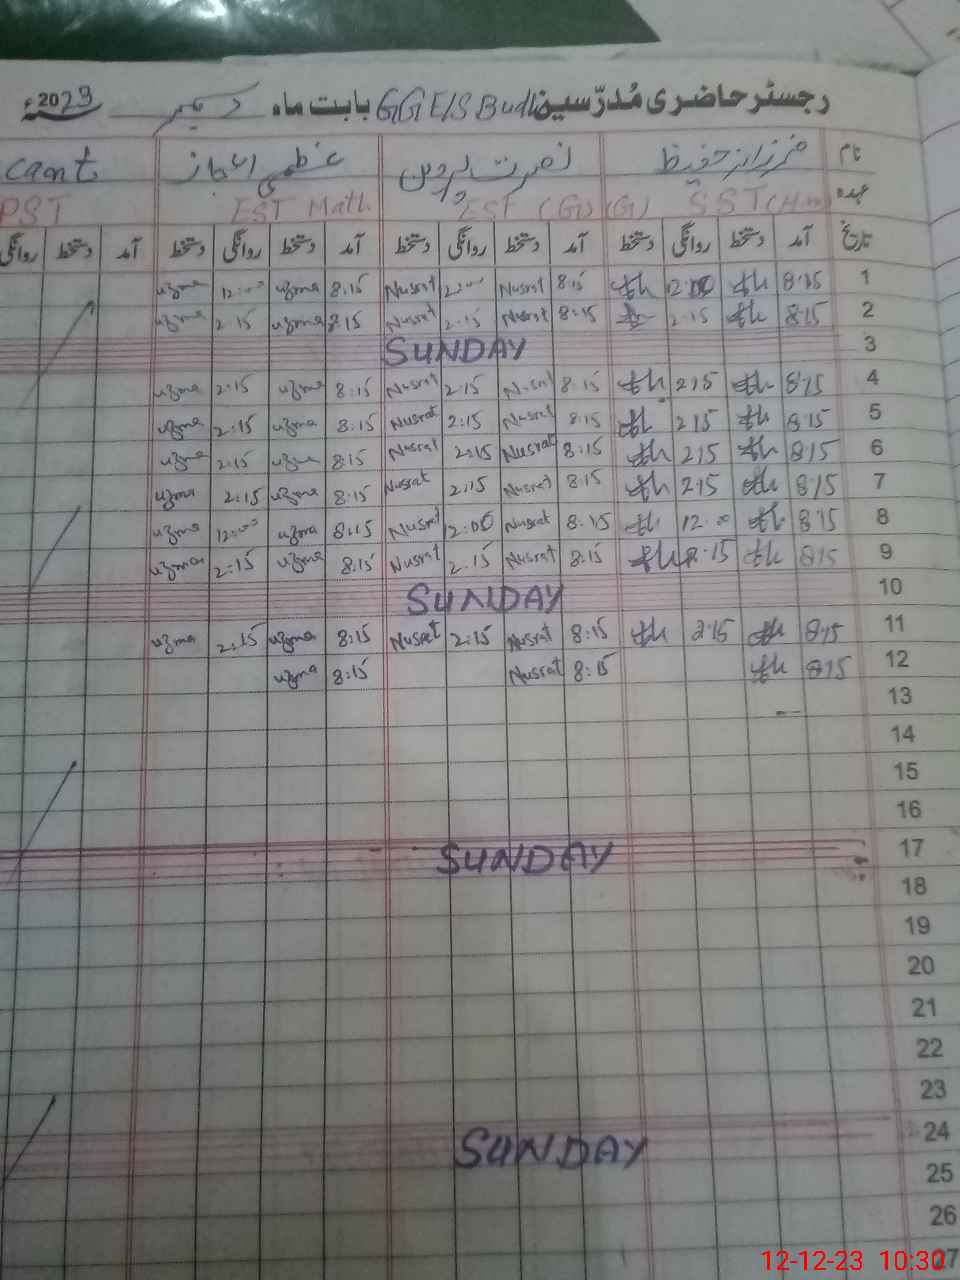 رجسٹر حاضری مُدرّسین GGE/S Budh بابت ماہ دسمبر 2023ء
نام فرزانہ حفیظ نصرت پروین عظمی اعجاز cant.
عہدہ SST (H.m) (G) EST (G) EST Math PST
تاریخ آمد دستخط روانگی دستخط آمد دستخط روانگی دستخط آمد دستخط روانگی دستخط آمد دستخط روانگی
1 8:15 12:00 8:15 Nusrat 12:00 Nusrat 8:15 uzma 12:00 uzma
2 8:15 2:15 8:15 Nusrat 2:15 Nusrat 8:15 uzma 2:15 uzma
3 SUNDAY
4 8:15 2:15 8:15 Nusrat 2:15 Nusrat 8:15 uzma 2:15 uzma
5 8:15 2:15 8:15 Nusrat 2:15 Nusrat 8:15 uzma 2:15 uzma
6 8:15 2:15 8:15 Nusrat 2:15 Nusrat 8:15 uzma 2:15 uzma
7 8:15 2:15 8:15 Nusrat 2:15 Nusrat 8:15 uzma 2:15 uzma
8 8:15 12:00 8:15 Nusrat 12:00 Nusrat 8:15 uzma 12:00 uzma
9 8:15 2:15 8:15 Nusrat 2:15 Nusrat 8:15 uzma 2:15 uzma
10 SUNDAY
11 8:15 2:15 8:15 Nusrat 2:15 Nusrat 8:15 uzma 2:15 uzma
12 8:15 8:15 Nusrat 8:15 uzma
13
14
15
16
17 SUNDAY
18
19
20
21
22
23
24 SUNDAY
25
26
27
12-12-23 10:30